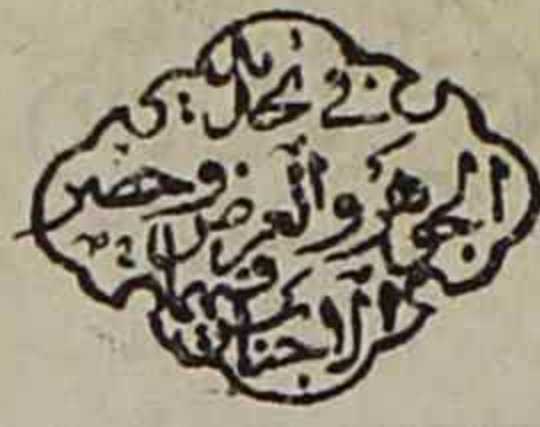 في تحليل
الجوهر والعرض وحصر
الاجناس فيهما